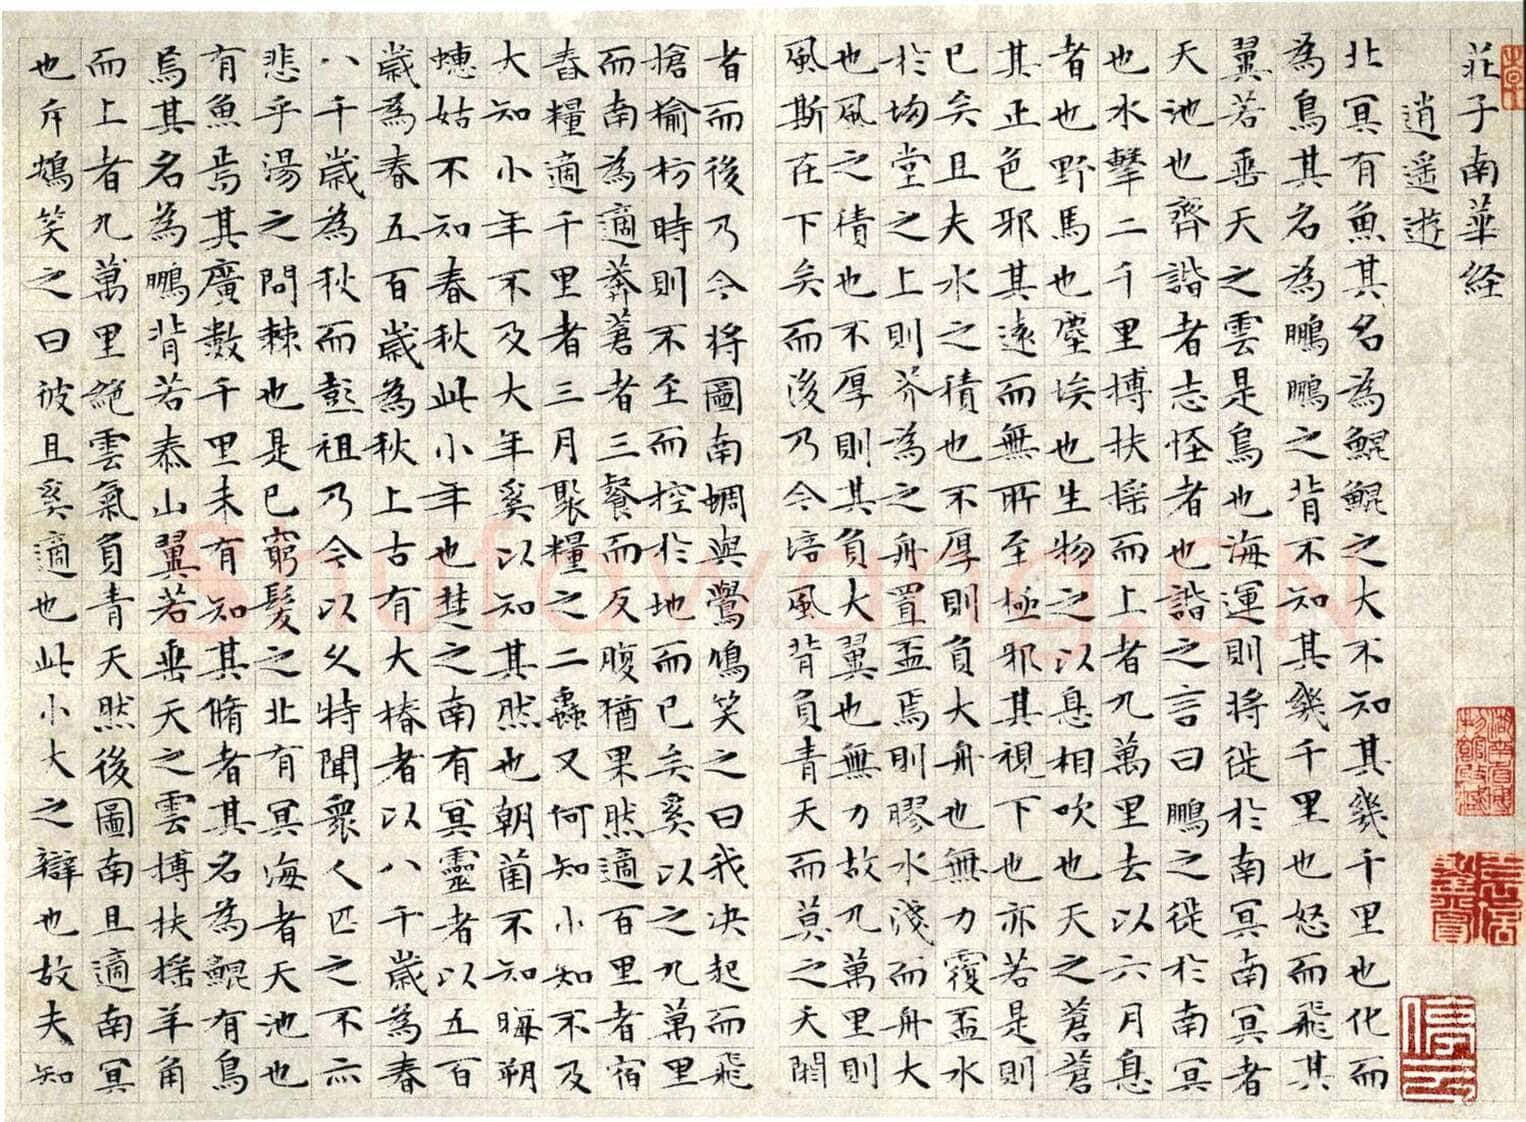 莊子南華経
逍遥遊
北冥有魚其名為鯤鯤之大不知其幾千里也化而
為鳥其名為鵬鵬之背不知其幾千里也怒而飛其
翼若垂天之雲是鳥也海運則将徙於南冥南冥者
天池也齊諧者志怪者也諧之言曰鵬之徙於南冥
也水擊二千里搏扶摇而上者九萬里去以六月息
者也野馬也塵埃也生物之以息相吹也天之蒼蒼
其正色邪其遠而無所至極邪其視下也亦若是則
已矣且夫水之積也不厚則負大舟也無力覆盃水
於坳堂之上則芥為之舟置盃焉則膠水淺而舟大
也風之積也不厚則其負大翼也無力故九萬里則
風斯在下矣而後乃今培風背負青天而莫之夭閼
者而後乃今将圖南蜩與鷽鳩笑之曰我決起而飛
搶榆枋時則不至而控於地而已矣奚以之九萬里
而南為適莽蒼者三餐而反腹猶果然適百里者宿
舂糧適千里者三月聚糧之二蟲又何知小知不及
大知小年不及大年奚以知其然也朝菌不知晦朔
蟪姑不知春秋此小年也楚之南有冥靈者以五百
歲為春五百歲為秋上古有大椿者以八千歲為春
八千歲為秋而彭祖乃今以久特聞衆人匹之不亦
悲乎湯之問棘也是已窮髮之北有冥海者天池也
有魚焉其廣數千里未有知其脩者其名為鯤有鳥
焉其名為鵬背若泰山翼若垂天之雲搏扶摇羊角
而上者九萬里絶雲氣負青天然後圖南且適南冥
也斥鴳笑之曰彼且奚適也此小大之辯也故夫知
Shufawang.CN